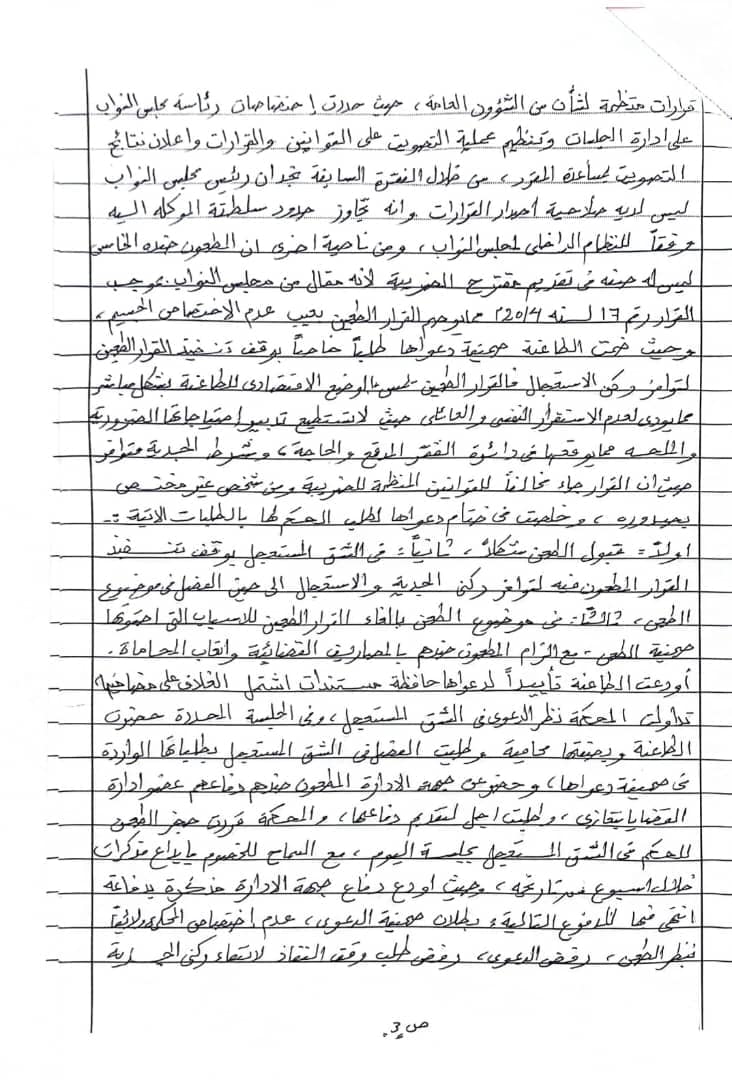 قرارات منظمة لشأن من الشؤون العامة، حيث حددت إختصاصات رئاسة مجلس النواب
على ادارة الجلسات وتنظيم عملية التصويت على القوانين والقرارات واعلان نتائج
التصويت بمساعدة المقرر، من خلال الفقرة السابقة نجد ان رئيس مجلس النواب
ليس لديه صلاحية اصدار القرارات وانه تجاوز حدود سلطته الموكله اليه
وفقاً للنظام الداخلي لمجلس النواب، ومن ناحية اخرى ان المطعون ضده الخامس
ليس له صفه في تقديم مقترح الضريبة لأنه مقال من مجلس النواب بموجب
القرار رقم 17 لسنه 2014م مما يوصم القرار الطعين بعيب عدم الاختصاص الجسيم،
وحيث ضمت الطاعنة صحيفة دعواها طلباً خاصاً بوقف تنفيذ القرار الطعين
لتوافر ركن الاستعجال فالقرار الطعين يمس بالوضع الاقتصادى للطاعنة بشكل مباشر
مما يودى لعدم الاستقرار النفسي والعائلى حيث لا تستطيع تدبير إحتياجاتها الضرورية
والملحه مما يوقعها في دائرة الفقر المدقع والحاجة، وشرط الجدية متوافر
حيث ان القرار جاء مخالفاً للقوانين المنظمة للضريبة ومن شخص غير مختص
بصدوره، وخلصت في ختام دعواها لطلب الحكم لها بالطلبات الاتية :-
اولاً: قبول الطعن شكلاً، ثانياً: في الشق المستعجل بوقف تنفيذ
القرار المطعون فيه لتوافر ركنى الجدية والاستعجال الى حين الفصل في موضوع
الطعن، ثالثاً: في موضوع الطعن بالغاء القرار الطعين للاسباب التى احتوتها
صحيفة الطعن - مع الزام المطعون ضدهم بالمصاريف القضائية واتعاب المحاماة.
أودعت الطاعنة تأييداً لدعواها حافظة مستندات اشتمل الغلاف على مضامينها
تداولت المحكمة نظر الدعوى في الشق المستعجل، وفي الجلسة المحددة حضرت
الطاعنة وبصفتها محامية وطلبت الفصل في الشق المستعجل بطلباتها الواردة
في صحيفة دعواها، وحضر عن جهة الادارة المطعون ضدهم دفاعهم عضو ادارة
القضايا بنغازى، وطلبت اجل لتقديم دفاعها، والمحكمة قررت حجز الطعن
للحكم في الشق المستعجل بجلسة اليوم، مع السماح للخصوم بايداع مذكرات
خلال اسبوع من تاريخه، وحيث اودع دفاع جهة الادارة مذكرة بدفاعه
انتهى فيها للدفوع التالية: بطلان صحيفة الدعوى، عدم إختصاص المحكمة ولائياً
بنظر الطعن، رفض الدعوى، رفض طلب وقف النفاذ لانتفاء ركنى الجدية
ص 3.